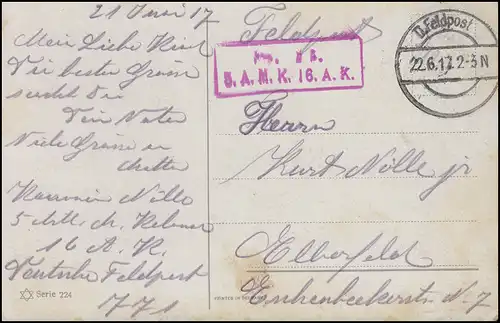 21 Juni 17
Mein Liebe Kind
Die besten Grüsse
sendet dir
Dein Vater
Viele Grüsse an
Nölle
5
16 A. K.
Deutsche Feldpost
771
Serie 224
Feldpost
5. A. M. K. 16. A. K.
D. Feldpost
22.6.17.2-3N
Herrn
Kurt Nölle jr
Elberfeld
Eschenbeekerstr. N. 7